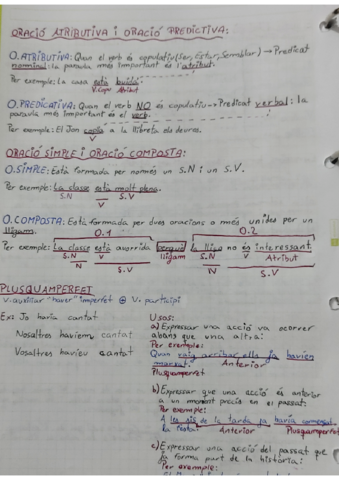 ORACIÓ ATRIBUTIVA I ORACIÓ PREDICTIVA:
O. ATRIBUTIVA: Quan el verb és copulatiu (Ser, Estar, Semblar) → Predicat
nominal: la paraula més important és l'atribut.
Per exemple: La casa està buida.
V.Copu Atribut
O. PREDICATIVA: Quan el verb NO és copulatiu → Predicat verbal: la
paraula més important és el verb.
Per exemple: El Jan copia a la llibreta els deures.
V
ORACIÓ SIMPLE I ORACIÓ COMPOSTA:
O. SIMPLE: Està formada per només un S.N i un S.V.
Per exemple: La classe està molt plena.
S.N V
S.V
O. COMPOSTA: Està formada per dues oracions o més unides per un
lligam.
O.1 O.2
Per exemple: La classe és avorrida perquè la lliço no és interessant
S.N V lligam S.N V Atribut
N S.V N S.V
PLUSQUAMPERFET
V. auxiliar "haver" imperfet + V. participi
Ex: Jo havia cantat
Nosaltres havíem cantat
Vosaltres havíeu cantat
Usos:
a) Expressar una acció va ocorrer
abans que una altra:
Per exemple:
Quan vaig arribar ells ja havien
marxat. Anterior
Plusquamperfet
b) Expressar que una acció és anterior
a un moment precís en el passat:
Per exemple:
A les sis de la tarda ja havia començat
la festa. Anterior Plusquamperfet
c) Expressar una acció del passat que
ja forma part de la història:
Per exemple: